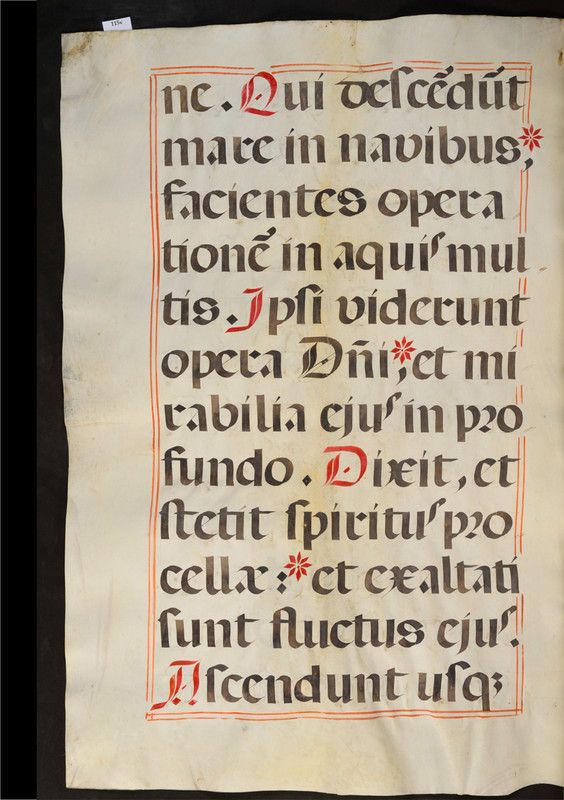 115v
ne. Qui descēdūt
mare in navibus,*
facientes opera
tionē in aquis mul
tis. Ipsi viderunt
opera Dn̄i;* et mi
rabilia ejus in pro
fundo. Dixit, et
stetit spiritus pro
cellæ:* et exaltati
sunt fluctus ejus.
Ascendunt usqꝫ